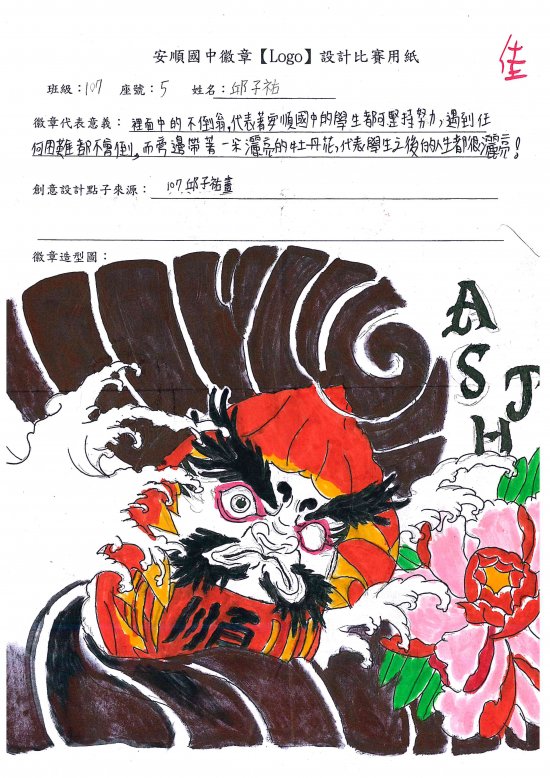 安順國中徽章【Logo】設計比賽用紙
佳
班級：107 座號：5 姓名：邱子祐
徽章代表意義：裡面中的不倒翁，代表著安順國中的學生都可堅持努力，遇到任
何困難都不會倒，而旁邊帶著一朵灑亮的牡丹花，代表學生之後的人生都很灑亮！
創意設計點子來源：107 邱子祐畫
徽章造型圖：
A
S
J
H
順